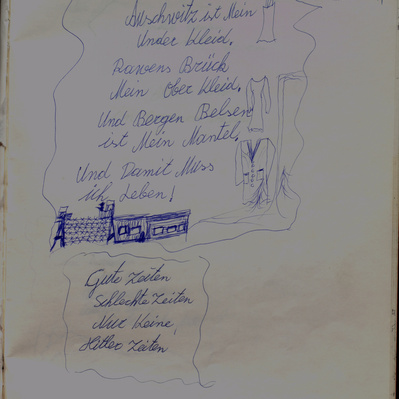 Auschwitz ist Mein
Under Kleid.
Rawens Brück
Mein Ober Kleid.
Und Bergen Belsen
ist Mein Mantel.
Und Damit Muss
ich Leben!
Gute Zeiten
Schlechte Zeiten
Nur Keine,
Hitler Zeiten